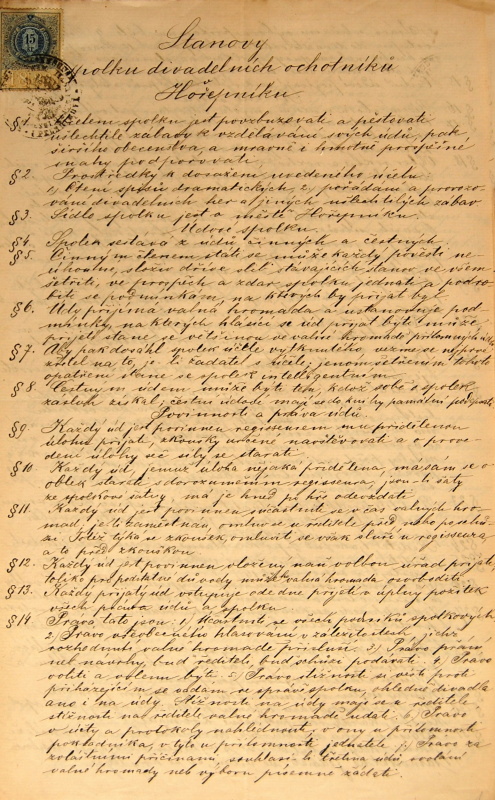 15
Stanovy
spolku divadelních ochotníků
Hořepníku.
§ 1. Účelem spolku jest povzbuzovati a pěstovati
ušlechtilé zábavy k vzdělávání svých údů, pak
širšího obecenstva, a mravně i hmotně prospěšné
snahy podporovati.
§ 2. Prostředky k dosažení uvedeného účelu
1, Čtení spisů dramatických, 2, pořádání a provozo-
vání divadelních her a jiných ušlechtilých zábav.
§ 3. Sídlo spolku jest v městě Hořepníku.
Údové spolku.
§ 4. Spolek sestává z údů činných a čestných
§ 5. Činným členem státi se může každý pověsti ne-
úhonné, složiv dříve slib, stávajících stanov ve všem
šetřiti, ve prospěch a zdar spolku jednati a podro-
biti se podmínkám, na kterých by přijat byl.
§ 6. Údy přijímá valná hromada a ustanovuje pod-
mínky, na kterých hlásící se úd přijat býti může,
přijetí stane se většinou ve valné hromadě přítomných údů
§ 7. Aby pak dosáhl spolek účele vytknutého,
§ 8. Čestným údem může býti ten, kdož sobě o spolek
zásluh získal; čestní údové mají
Povinnosti a práva údů.
§ 9. Každý úd jest povinnen regisseurem mu přidělenou
úlohu přijati, zkoušky určené navštěvovati a o prove-
dení úlohy seč síly se starati.
§ 10. Každý úd, jemuž úloha nějaká přidělena, má sám se o
oblek starati s dorozuměním regisseura, jsou-li šaty
ze spolkové šatny, má je hned po hře odevzdati.
§ 11. Každý úd jest povinnen súčastniti se včas valných hro-
mad, je-li zaměstnán, omluv se u ředitele před nebo po schů-
zi. Totéž týká se zkoušek, omluviti se však sluší u regisseura
a to před zkouškou.
§ 12. Každý úd jest povinnen vložený naň volbou úřad přijati,
toliko pro podstatné důvody může valná hromada osvoboditi
§ 13. Každý přijatý úd vstupuje ode dne přijetí v úplný požitek
všech práv údů a spolku
§ 14. Práva tato jsou: 1) Účastniti se všech podniků spolkových
2) Právo všeobecného hlasování v záležitostech, jichž
rozhodnutí valné hromadě přísluší. 3) Právo přání
neb návrhy, buď řediteli, buď schůzi podávati. 4, Právo
voliti a volenu býti. 5, Právo stížnosti si vésti proti
přicházejícím se vadám ve správě spolku, ohledně divadla
ano i na údy. Stížnosti na údy mají se u ředitele
stížnosti na ředitele valné hromadě udati. 6, Právo
v účty a protokoly nahlédnouti, v ony u přítomnosti
pokladníka, v tyto u přítomnosti jednatele. 7, Právo za
zvláštními příčinami, souhlasí-li třetina údů, svolání
valné hromady neb výboru písemně žádati.